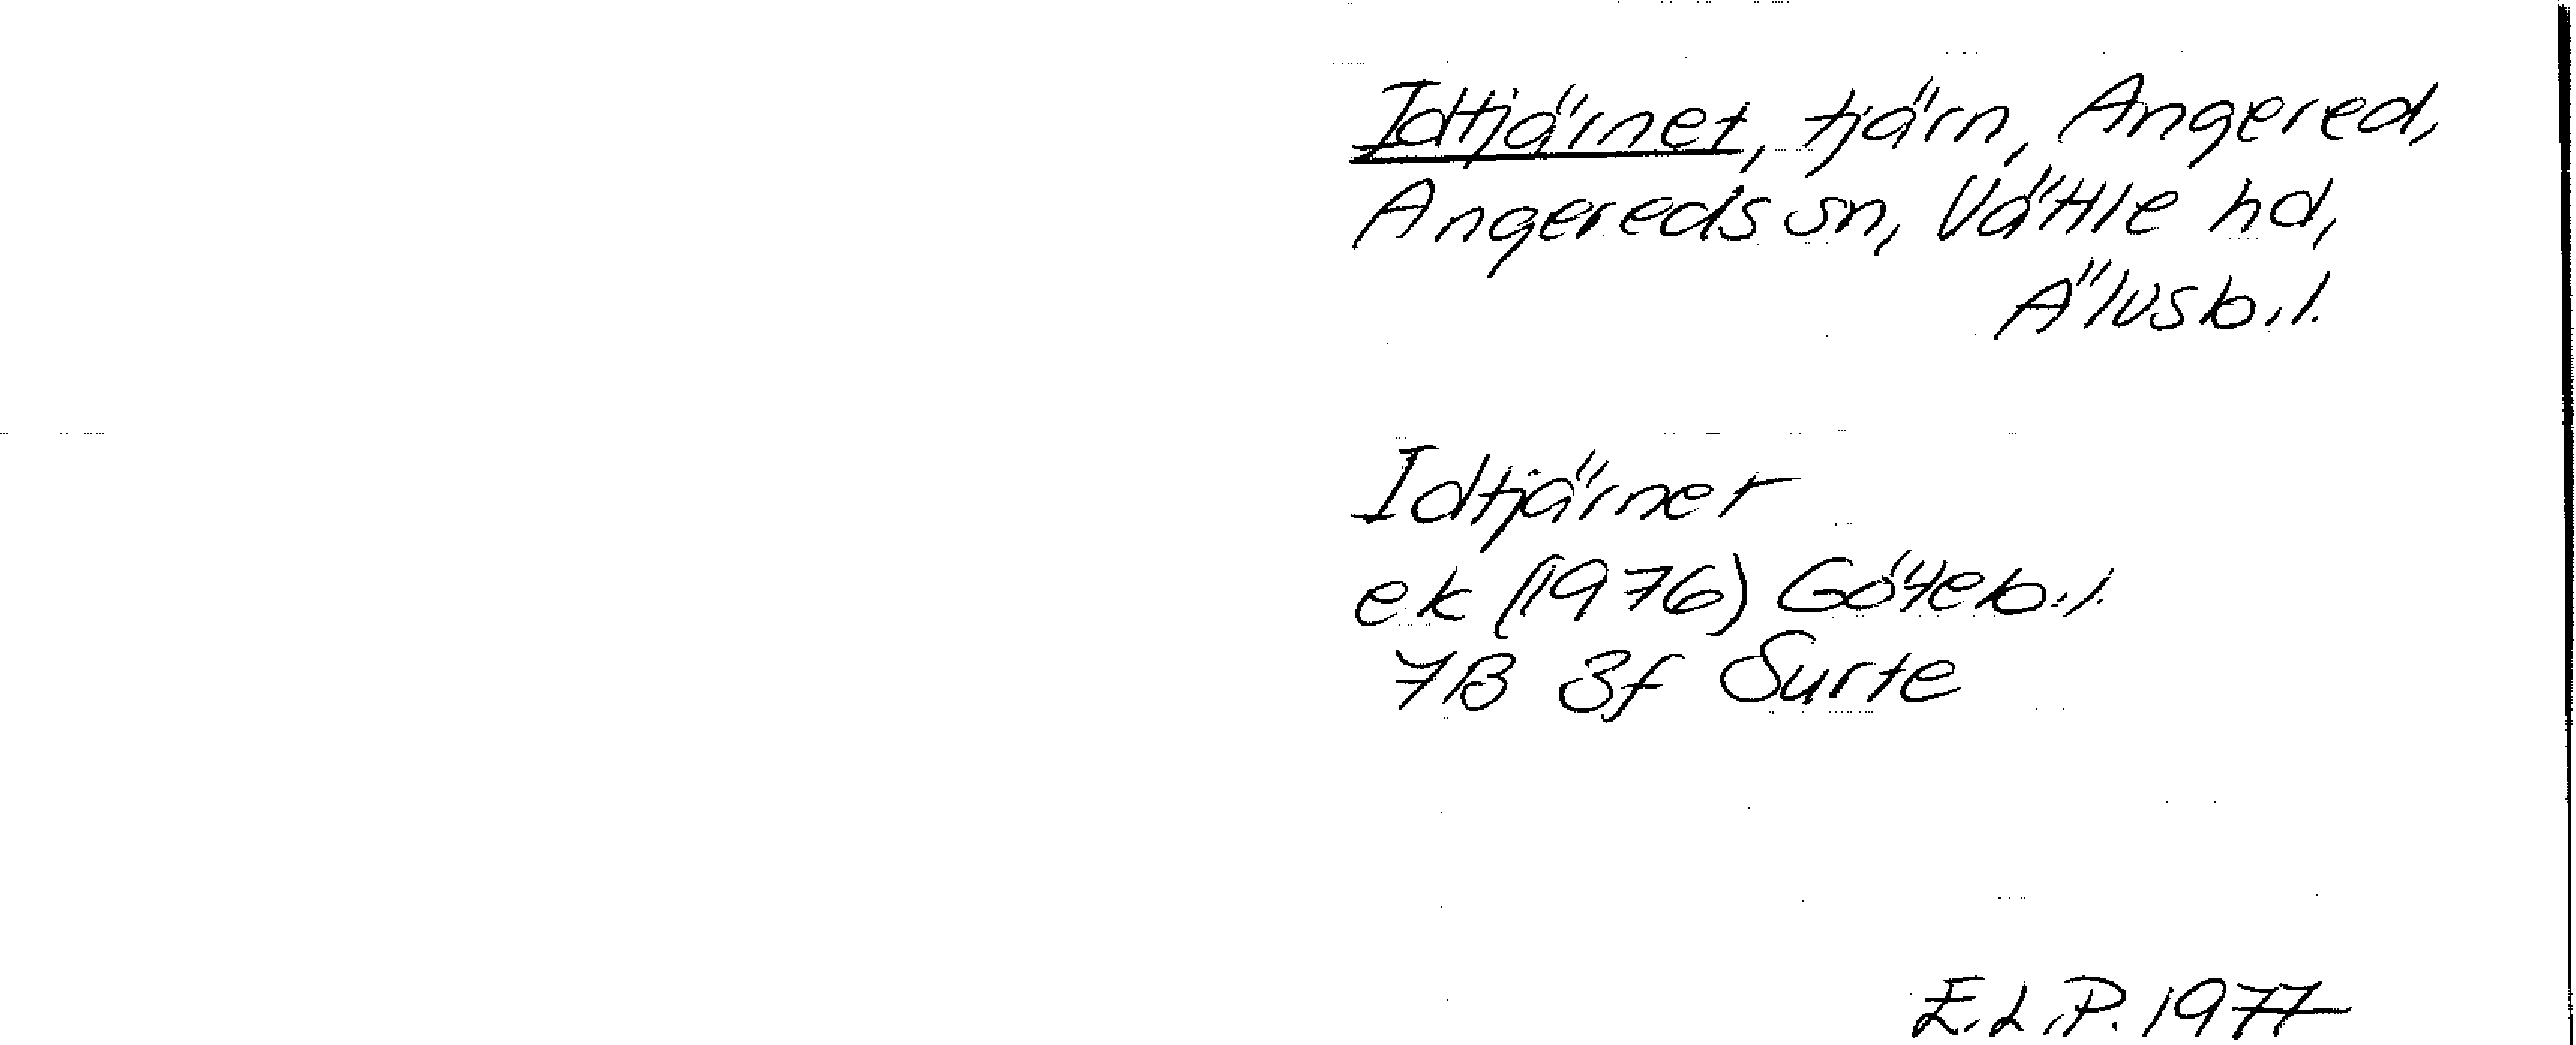 Idtjärnet, tjärn, Angered,
Angereds sn, Vättle hd,
Älvsb.l.
Idtjärnet
ek (1976) Göteb.l.
7B 3f Surte
E.L.P. 1977